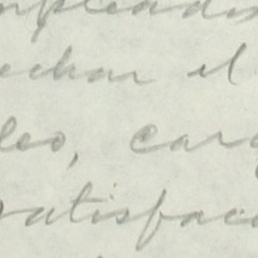 mpleados
echar el
leo, carg
ratisfacc